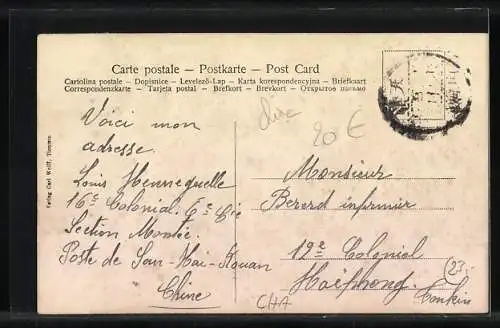 Carte postale – Postkarte – Post Card
Cartolina postale – Dopisnice – Levelező-Lap – Karta korespondencyjna – Briefkaart
Correspondenzkarte – Tarjeta postal – Brefkort – Brevkort – Открытое письмо
Verlag Carl Wolff, Tientsin
Voici mon
adresse.
Louis Hennequelle
16e Colonial. 6e Cie
Section Montée
Poste de
Chine
20 €
Monsieur
Bererd infirmier
12e Colonial
Haïphong
Tonkin
(23.-
CHA